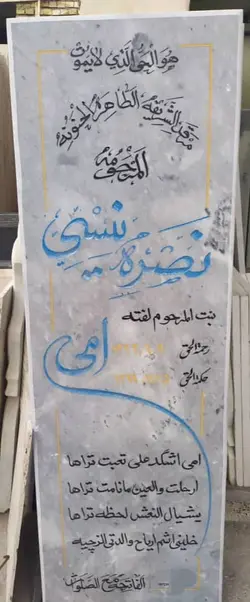 هو الحي الذي لا يموت
مرقد الشريفة الطاهرة الحنونة
المرحومة
نصره نيسي
بنت المرحوم لفته
امي
امي اشكد على تحبت تراها
ارحلت والعين مانامت تراها
يشيال النعش لحظه تراها
خليني اشم ارياح والدتي الزجيه
الفاتحة مع الصلوات